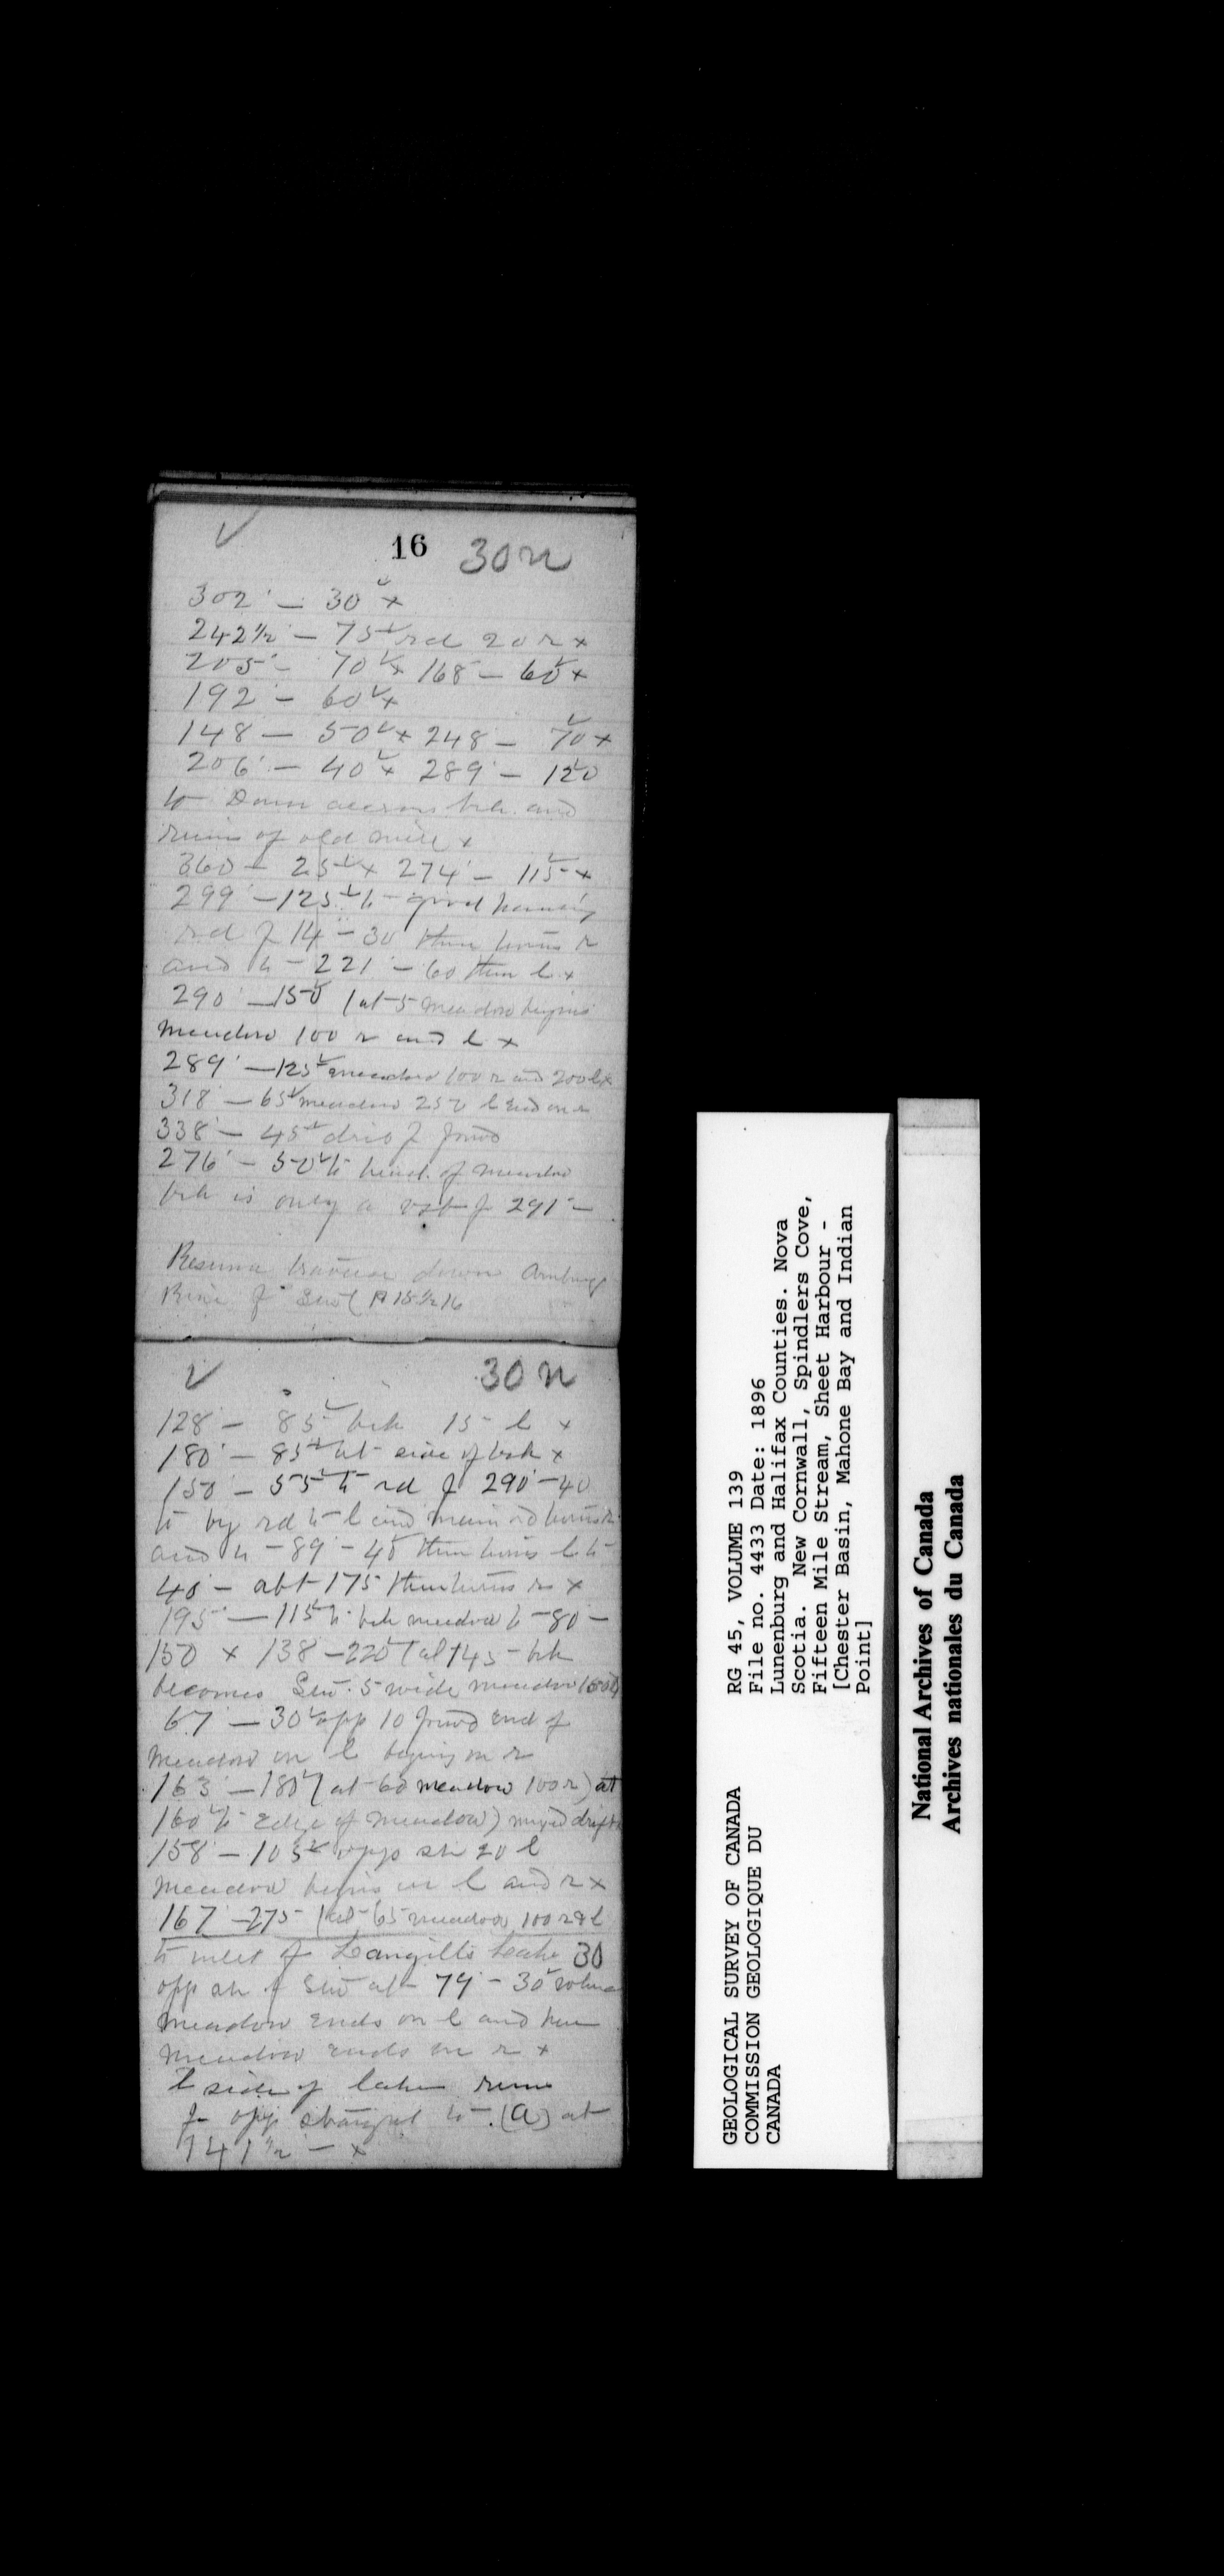 16 30 n
302° – 30 x
242½ – 75 rd 20 r x
205° – 70 x 168 – 60 x
192° – 60 x
148 – 50 x 248 – 70 x
206° – 40 x 289° – 120
to Dam across brk and
ruins of old mill x
360 – 25 x 274° – 115 x
299° – 125 to good hauling
rd f 14° – 30 then turns r
and to – 221° – 60 then l x
290° – 150 (at 5 meadow begins
meadow 100 r and l x
289° – 125 meadow 100 r and 200 l x
318° – 65 meadow 250 l end on r
338° – 45 f
276° – 50 to head of meadow
brk is only a f 291° –
Resume traverse down
River f Stw P 15 ½ 16
30 n
128° – 85 brk 15 l x
180° – 85 at side of brk x
150° – 55 to rd f 290° – 40
to by rd to l and main rd turns r
and to – 89° – 45 then turns l to
40 – abt 175 then turns r x
195° – 115 to brk meadow to – 80 –
150 x 138 – 220 (at 145 – brk
becomes Stw 5 wide meadow 150
67° – 30 opp 10 end of
meadow on l begins on r
163° – 180 (at 60 meadow 100 r) at
160 to edge of meadow) mixed drift
158° – 105 opp sh 20 l
meadow begins on l and r x
167° – 275 (at 65 meadow 100 r & l
to inlet of Langills Lake 30
opp sh f Stw at – 79° – 30 where
meadow ends on l and here
meadow ends on r x
l side of lake runs
f opp straight to – (a) at
141½ – x
GEOLOGICAL SURVEY OF CANADA
COMMISSION GEOLOGIQUE DU
CANADA
RG 45, VOLUME 139
File no. 4433 Date: 1896
Lunenburg and Halifax Counties. Nova
Scotia. New Cornwall, Spindlers Cove,
Fifteen Mile Stream, Sheet Harbour -
[Chester Basin, Mahone Bay and Indian
Point]
National Archives of Canada
Archives nationales du Canada